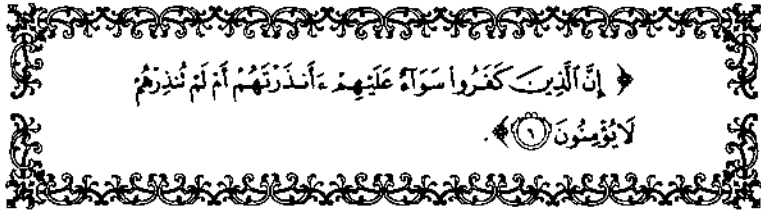 ﴿ إِنَّ ٱلَّذِينَ كَفَرُوا۟ سَوَآءٌ عَلَيْهِمْ ءَأَنذَرْتَهُمْ أَمْ لَمْ تُنذِرْهُمْ
لَا يُؤْمِنُونَ ٦ ﴾ .